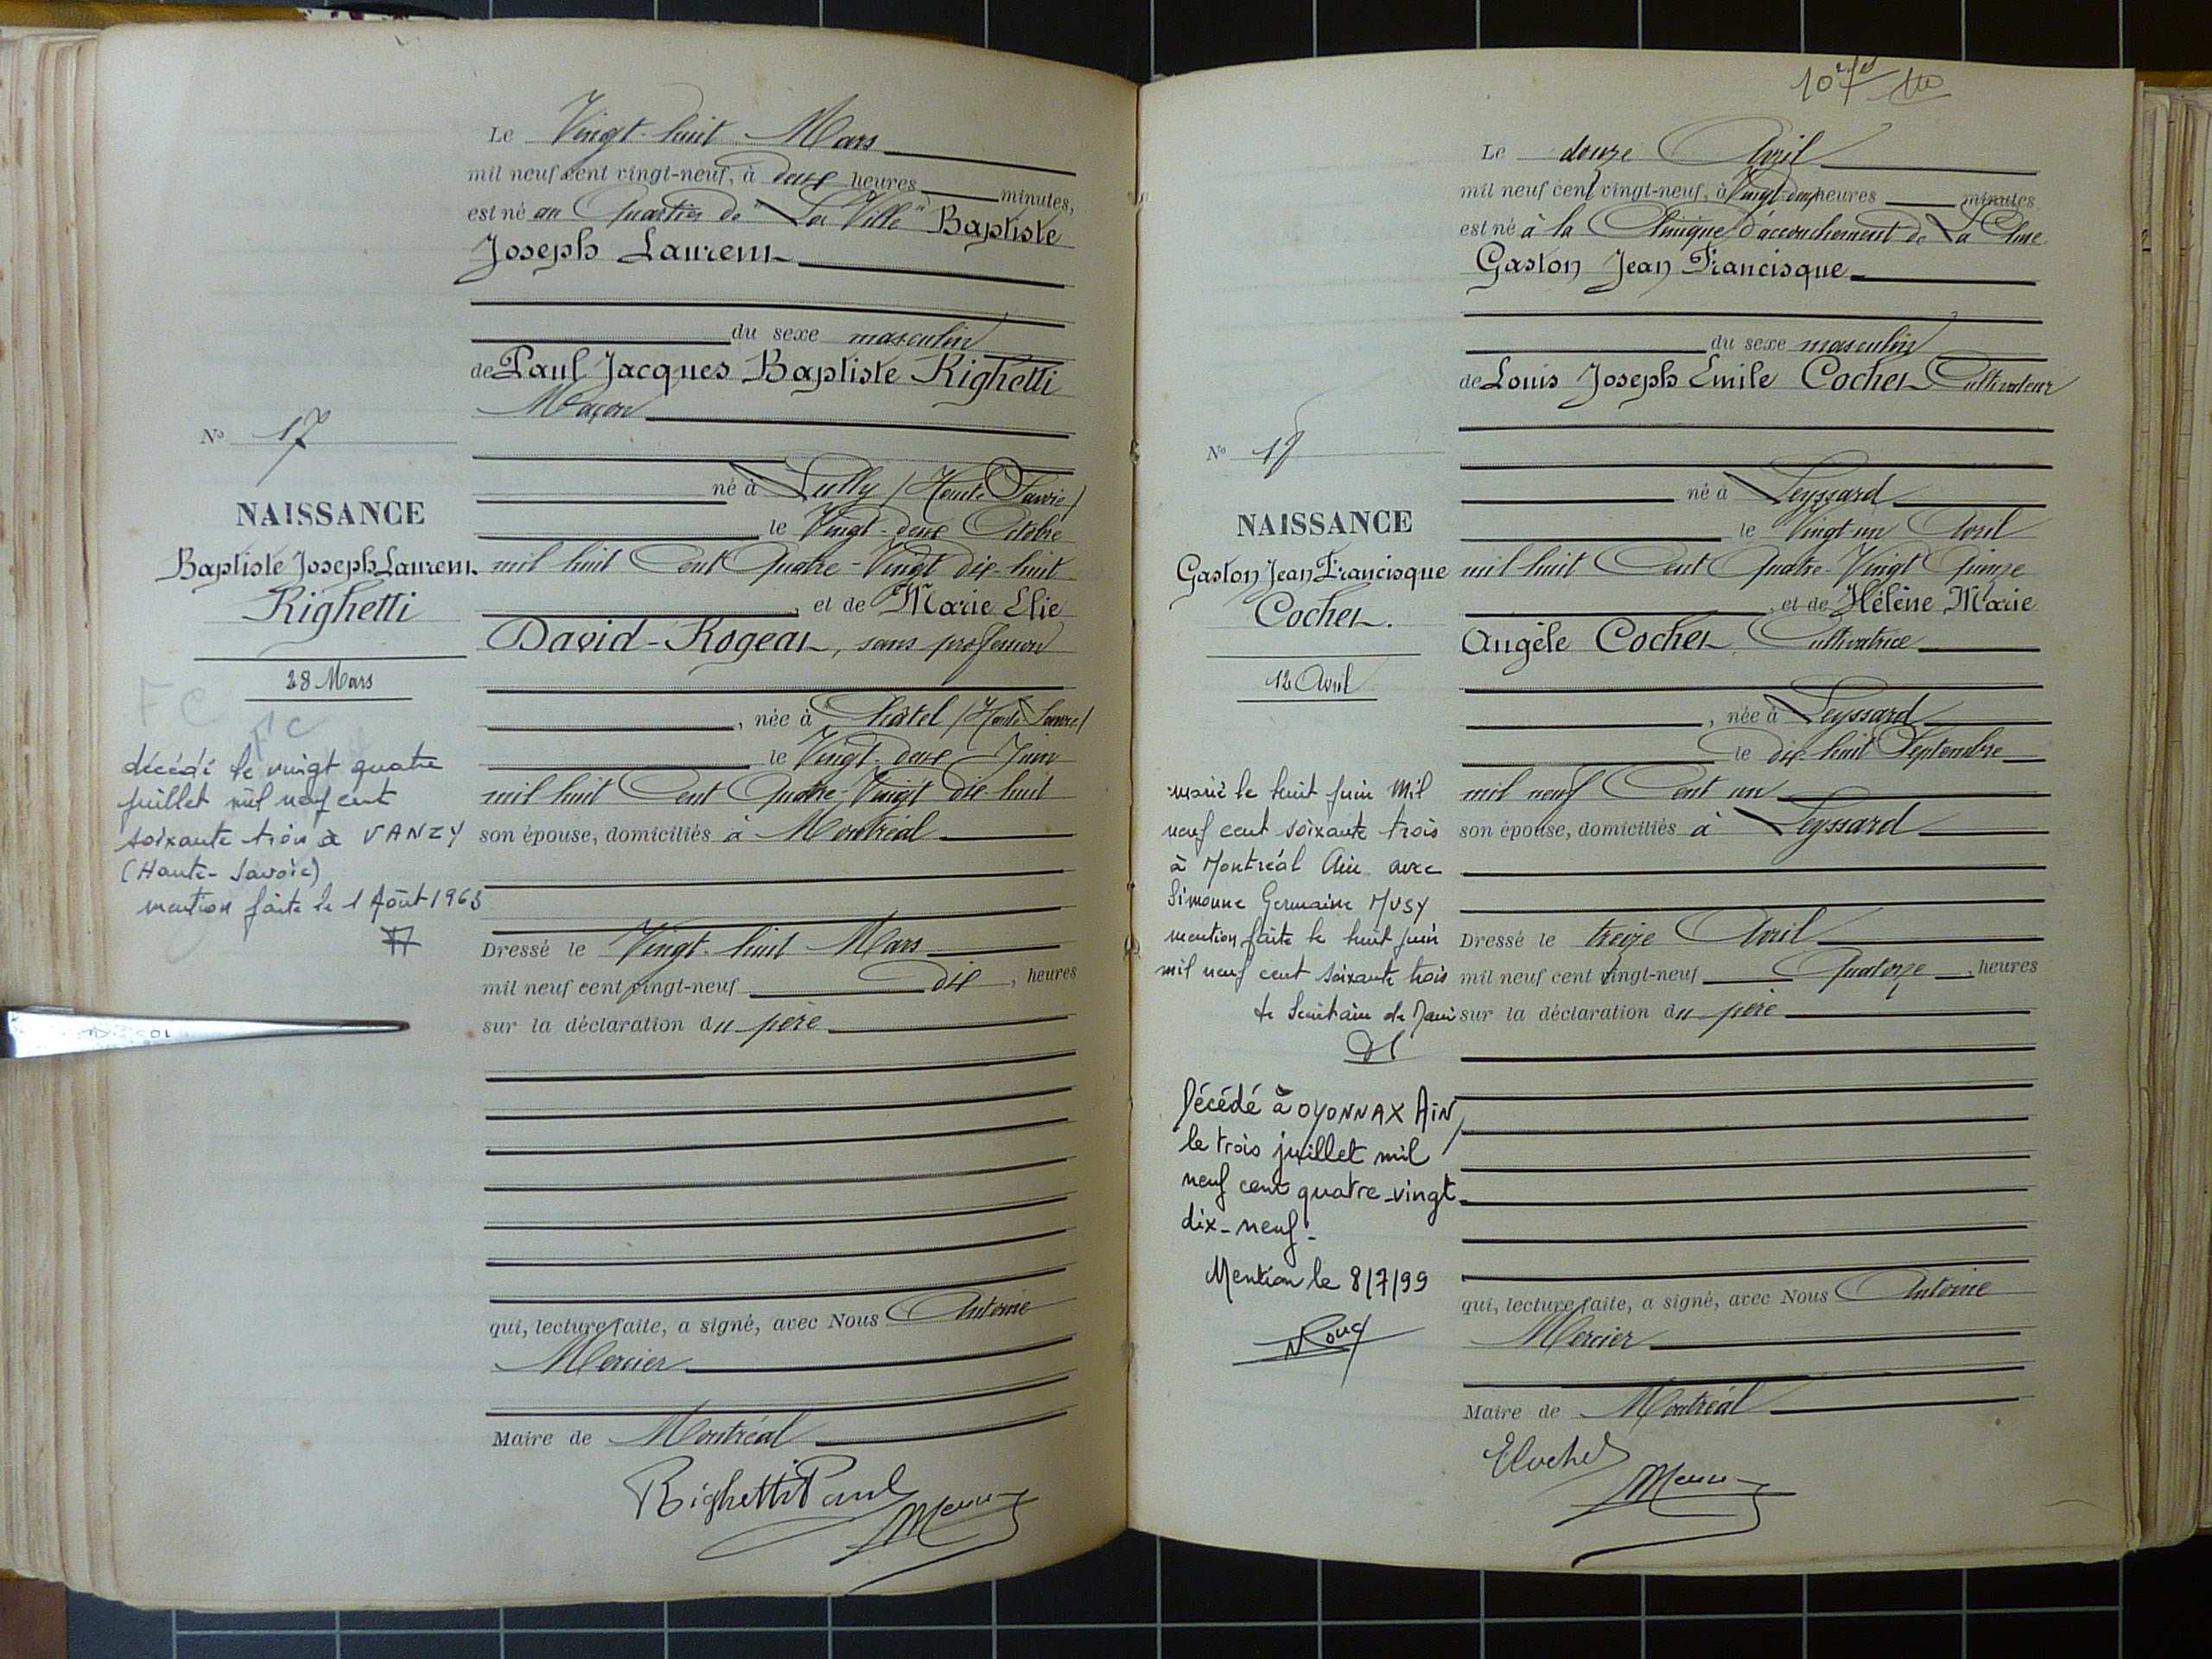 Le Vingt-huit Mars
mil neuf cent vingt-neuf, à deux heures minutes,
est né au Quartier de "La Ville" Baptiste
Joseph Laurent
du sexe masculin
de Paul Jacques Baptiste Righetti
Maçon
né à Lully (Haute Savoie)
le Vingt-deux Octobre
mil huit Cent Quatre-Vingt dix-huit
, et de Marie Elie
David-Rogeat, sans profession
, née à Châtel (Haute Savoie)
le Vingt-deux Juin
mil huit Cent Quatre-Vingt dix-huit
son épouse, domiciliés à Montréal
Dressé le Vingt-huit Mars
mil neuf cent vingt-neuf dix, heures
sur la déclaration du père
qui, lecture faite, a signé, avec Nous Antoine
Mercier
Maire de Montréal
Righetti Paul
No 17
NAISSANCE
Baptiste Joseph Laurent
Righetti
28 Mars
FC
FC
décédé le vingt quatre
juillet mil neuf cent
soixante trois à VANZY
(Haute-Savoie)
mention faite le 1 Août 1963
Le douze Avril
mil neuf cent vingt-neuf, à Vingt-deux heures minutes
est né à la Clinique d'accouchement de La Cluse
Gaston Jean Francisque
du sexe masculin
de Louis Joseph Emile Cochet Cultivateur
né à Leyssard
le Vingt-un Avril
mil huit Cent Quatre-Vingt Quinze
, et de Hélène Marie
Angèle Cochet, Cultivatrice
, née à Leyssard
le dix-huit Septembre
mil neuf Cent un
son épouse, domiciliés à Leyssard
Dressé le treize Avril
mil neuf cent vingt-neuf Quatorze, heures
sur la déclaration du père
qui, lecture faite, a signé, avec Nous Antoine
Mercier
Maire de Montréal
ECochet
No 18
NAISSANCE
Gaston Jean Francisque
Cochet.
12 Avril
marié le huit juin mil
neuf cent soixante trois
à Montréal Ain avec
Simonne Germaine MUSY
mention faite le huit juin
mil neuf cent soixante trois
le Secrétaire de Mairie
Décédé à OYONNAX AiN
le trois juillet mil
neuf cent quatre-vingt
dix-neuf.
Mention le 8/7/99